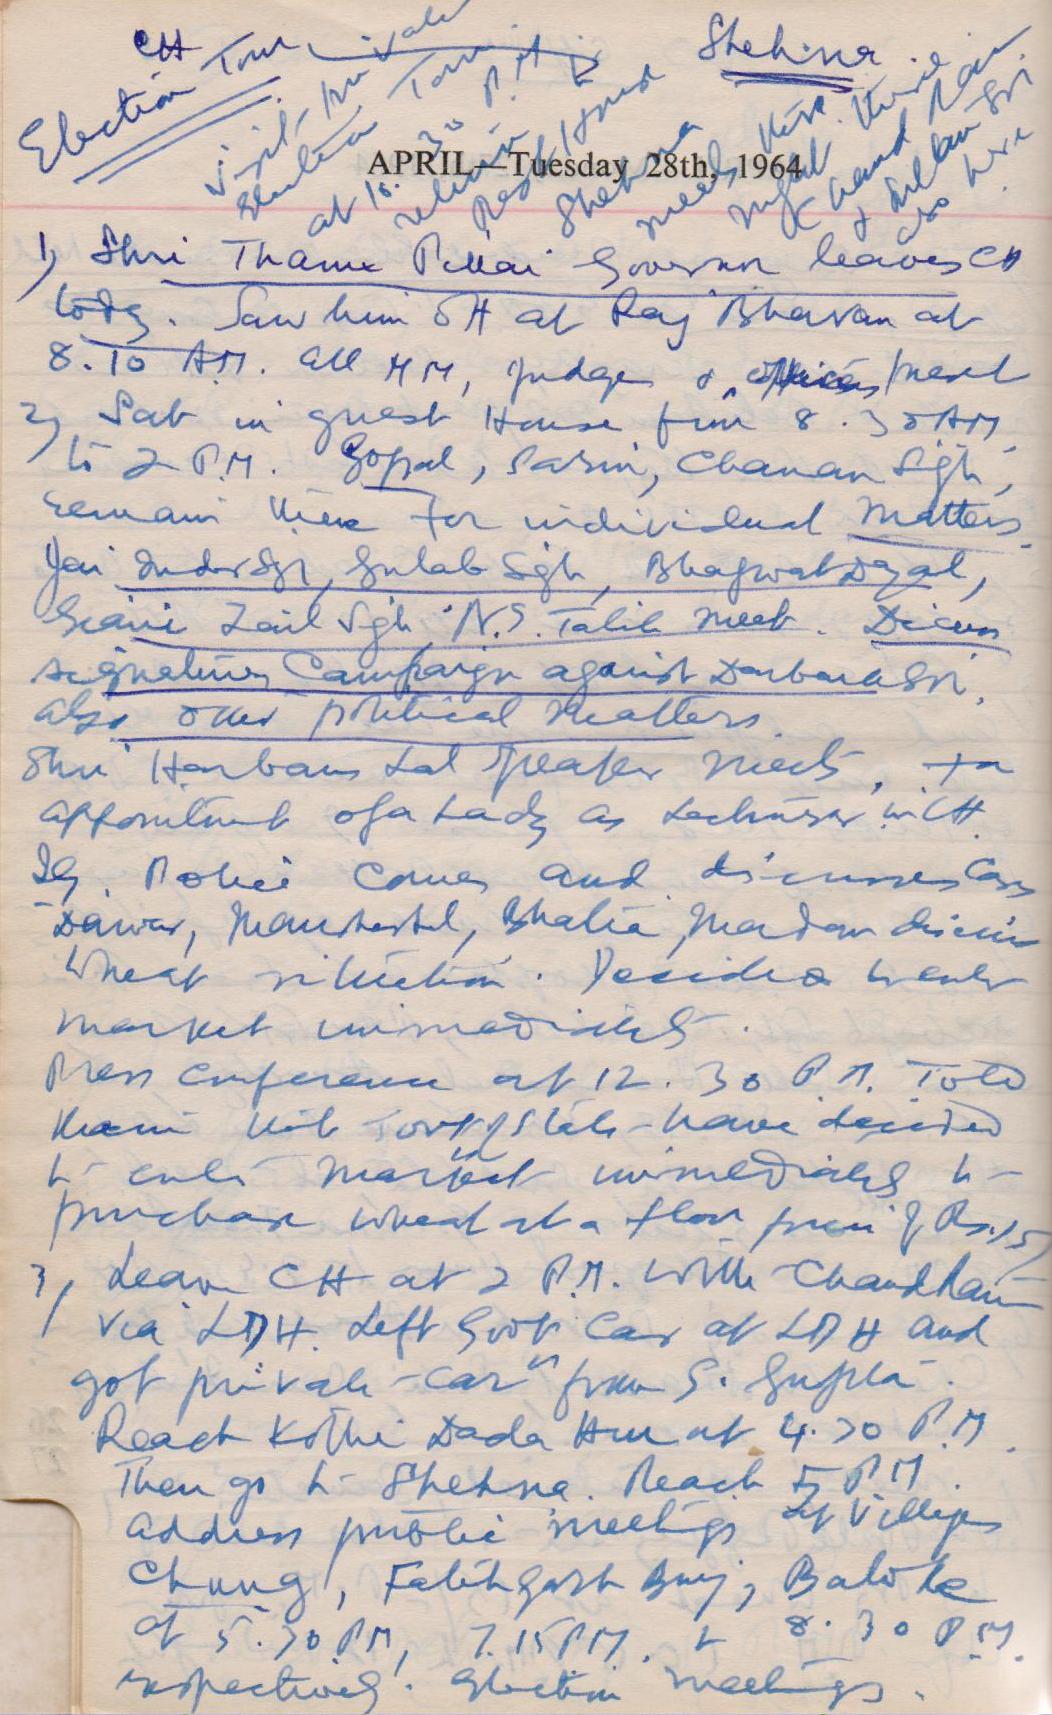 CH Shehna
Election Tour private
visit private
Election Tour
at 10.30 P.M.
return
Rest House
Shehna
meets there
night
Chand Ram
& Dhillon Sri
also here
APRIL—Tuesday 28th, 1964
1) Shri Thanu Pillai Governor leaves CH
today. Saw him off at Raj Bhavan at
8.10 A.M. all MM, judges & officers present
2) Sat in guest House from 8.30 AM
to 2 P.M. Gopal, Sabin, Chanan Sigh,
remain there for individual matters.
Jai Inder Sgh, Gulab Sigh, Bhagwat Dayal,
Giani Zail Sgh, N.S. Talib meet. Discuss
signatures Campaign against Darbara Sri.
also other political matters.
Shri Harbans Lal Speaker meets, for
appointment of a Lady as Lecturer in CH.
IG. Police comes and discusses cases
Dawar, Bhatia, Madan discuss
Wheat situation. Decided to enter
market immediately.
Press conference at 12.30 P.M. Told
them that Govt of State have decided
to enter market immediately to
purchase wheat at a floor price of Rs. 15/
3) Leave CH at 2 P.M. with Chand Ram
via LDH. Left Govt Car at LDH and
got private car from S. Gupta.
Reach Kothi Dada Hur at 4.30 P.M.
Then go to Shehna. Reach 5 P.M.
address public meetings at villages
Chung, Fatehgarh Burj, Baloke
at 5.30 PM, 7.15 PM. & 8.30 P.M.
respectively. Election meetings.